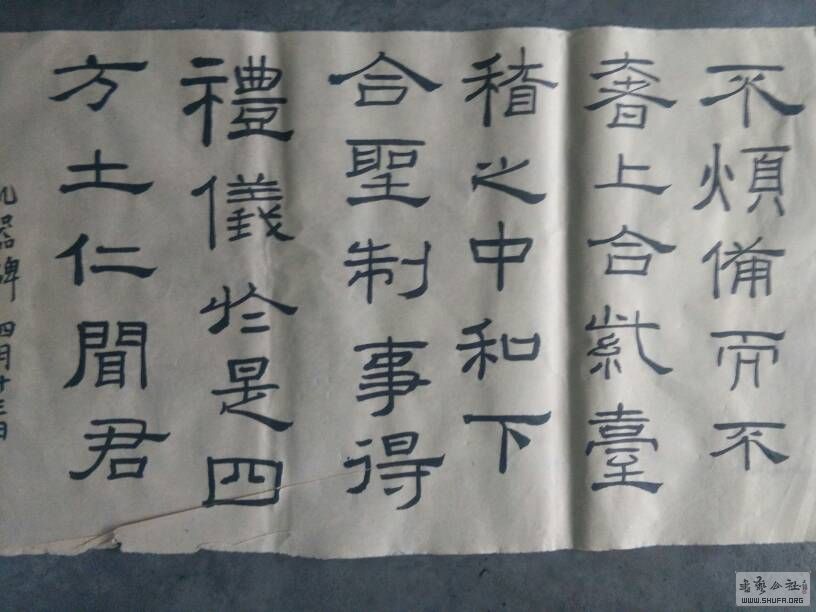 不煩備而不
奢上合紫臺
稽之中和下
合聖制事得
禮儀於是四
方土仁聞君
礼器碑 四月十三日
書藝公社
WWW.SHUFA.ORG